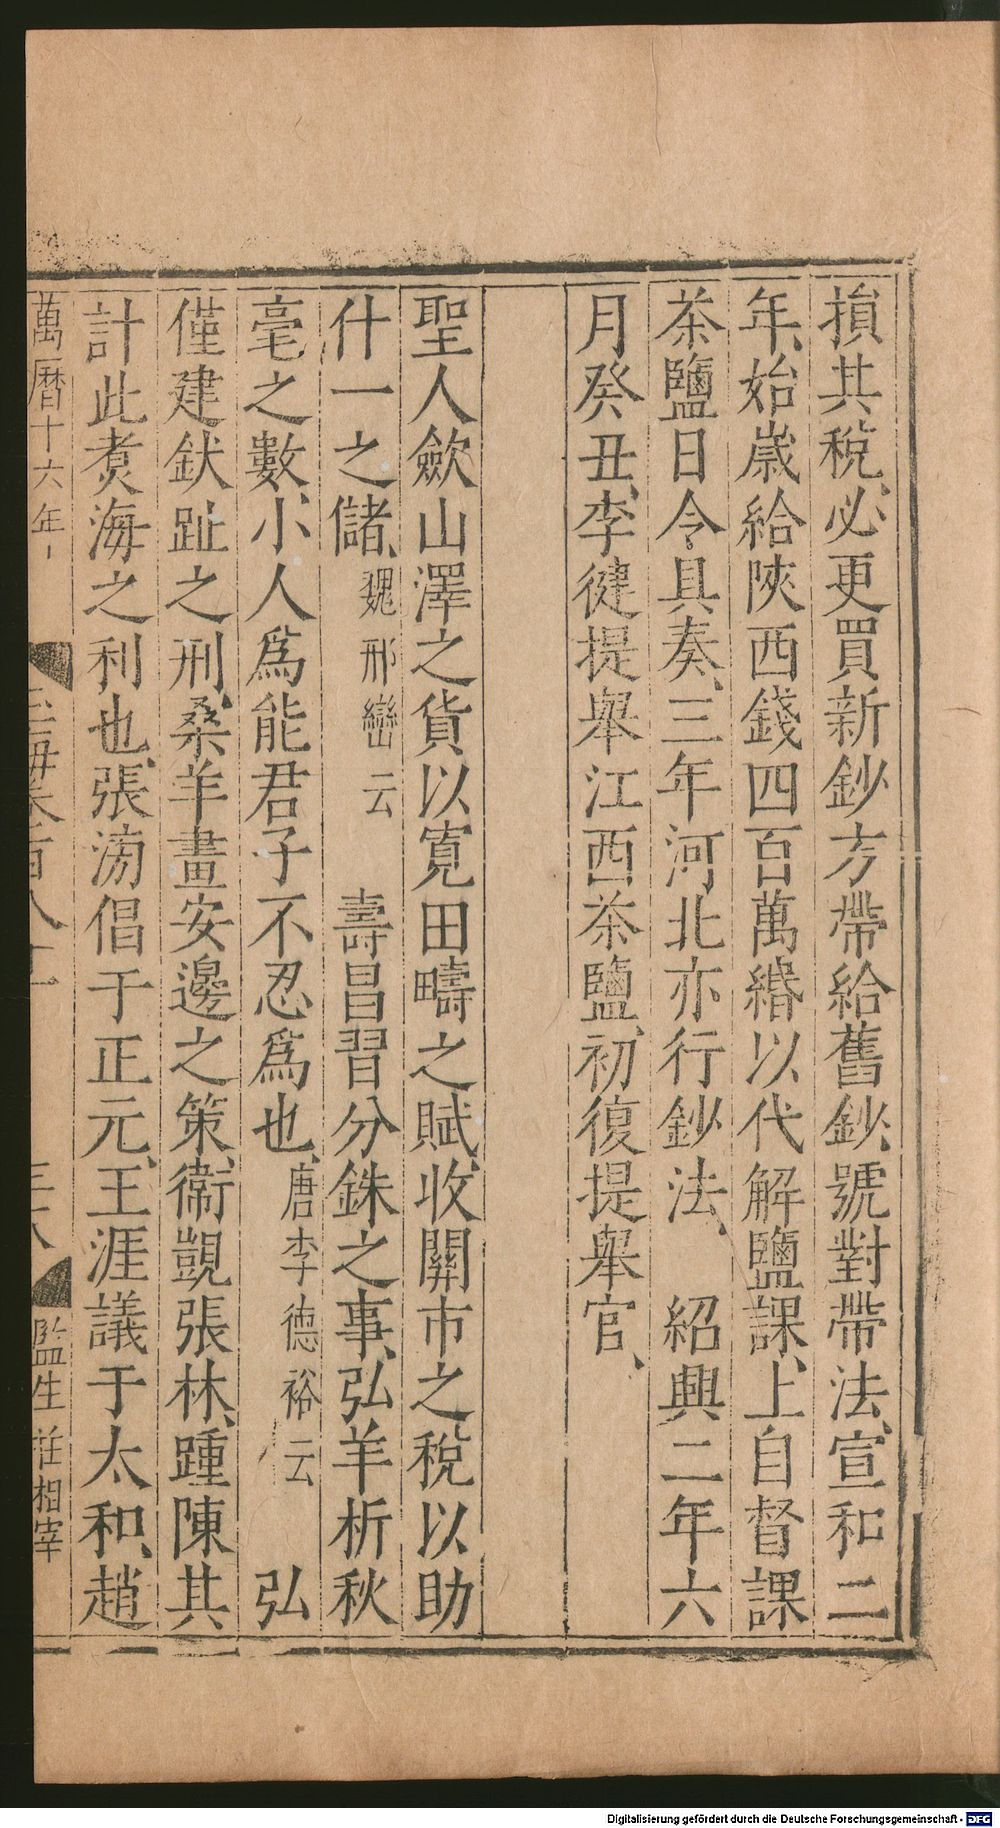 損其稅、必更買新鈔、方帶給舊鈔、號對帶法、宣和二
年、始歲給陝西錢四百萬緡以代解鹽課、上自督課
茶鹽日令具奏、三年河北亦行鈔法、紹興二年六
月癸丑、李健提舉江西茶鹽、初復提舉官、
聖人斂山澤之貨以寬田疇之賦、收關市之稅以助
什一之儲、魏邢巒云 壽昌習分銖之事、弘羊析秋
毫之數、小人爲能君子不忍爲也、唐李德裕云 弘
僅建釱趾之刑、桑羊畫安邊之策、衞覬張林、踵陳其
計此煑海之利也、張滂倡于正元、王涯議于太和、趙
萬曆十六年 玉海卷百八十一 三八 監生 相宰
Digitalisierung gefördert durch die Deutsche Forschungsgemeinschaft - DFG